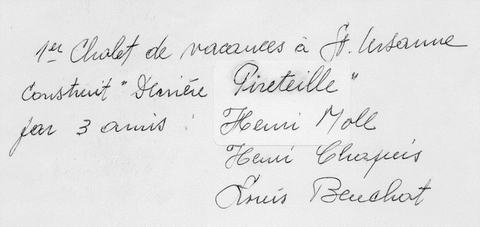 1er Chalet de vacances à St. Ursanne
construit "Derrière Pireteille"
par 3 amis : Henri Moll
Henri Chapuis
Louis Beuchat